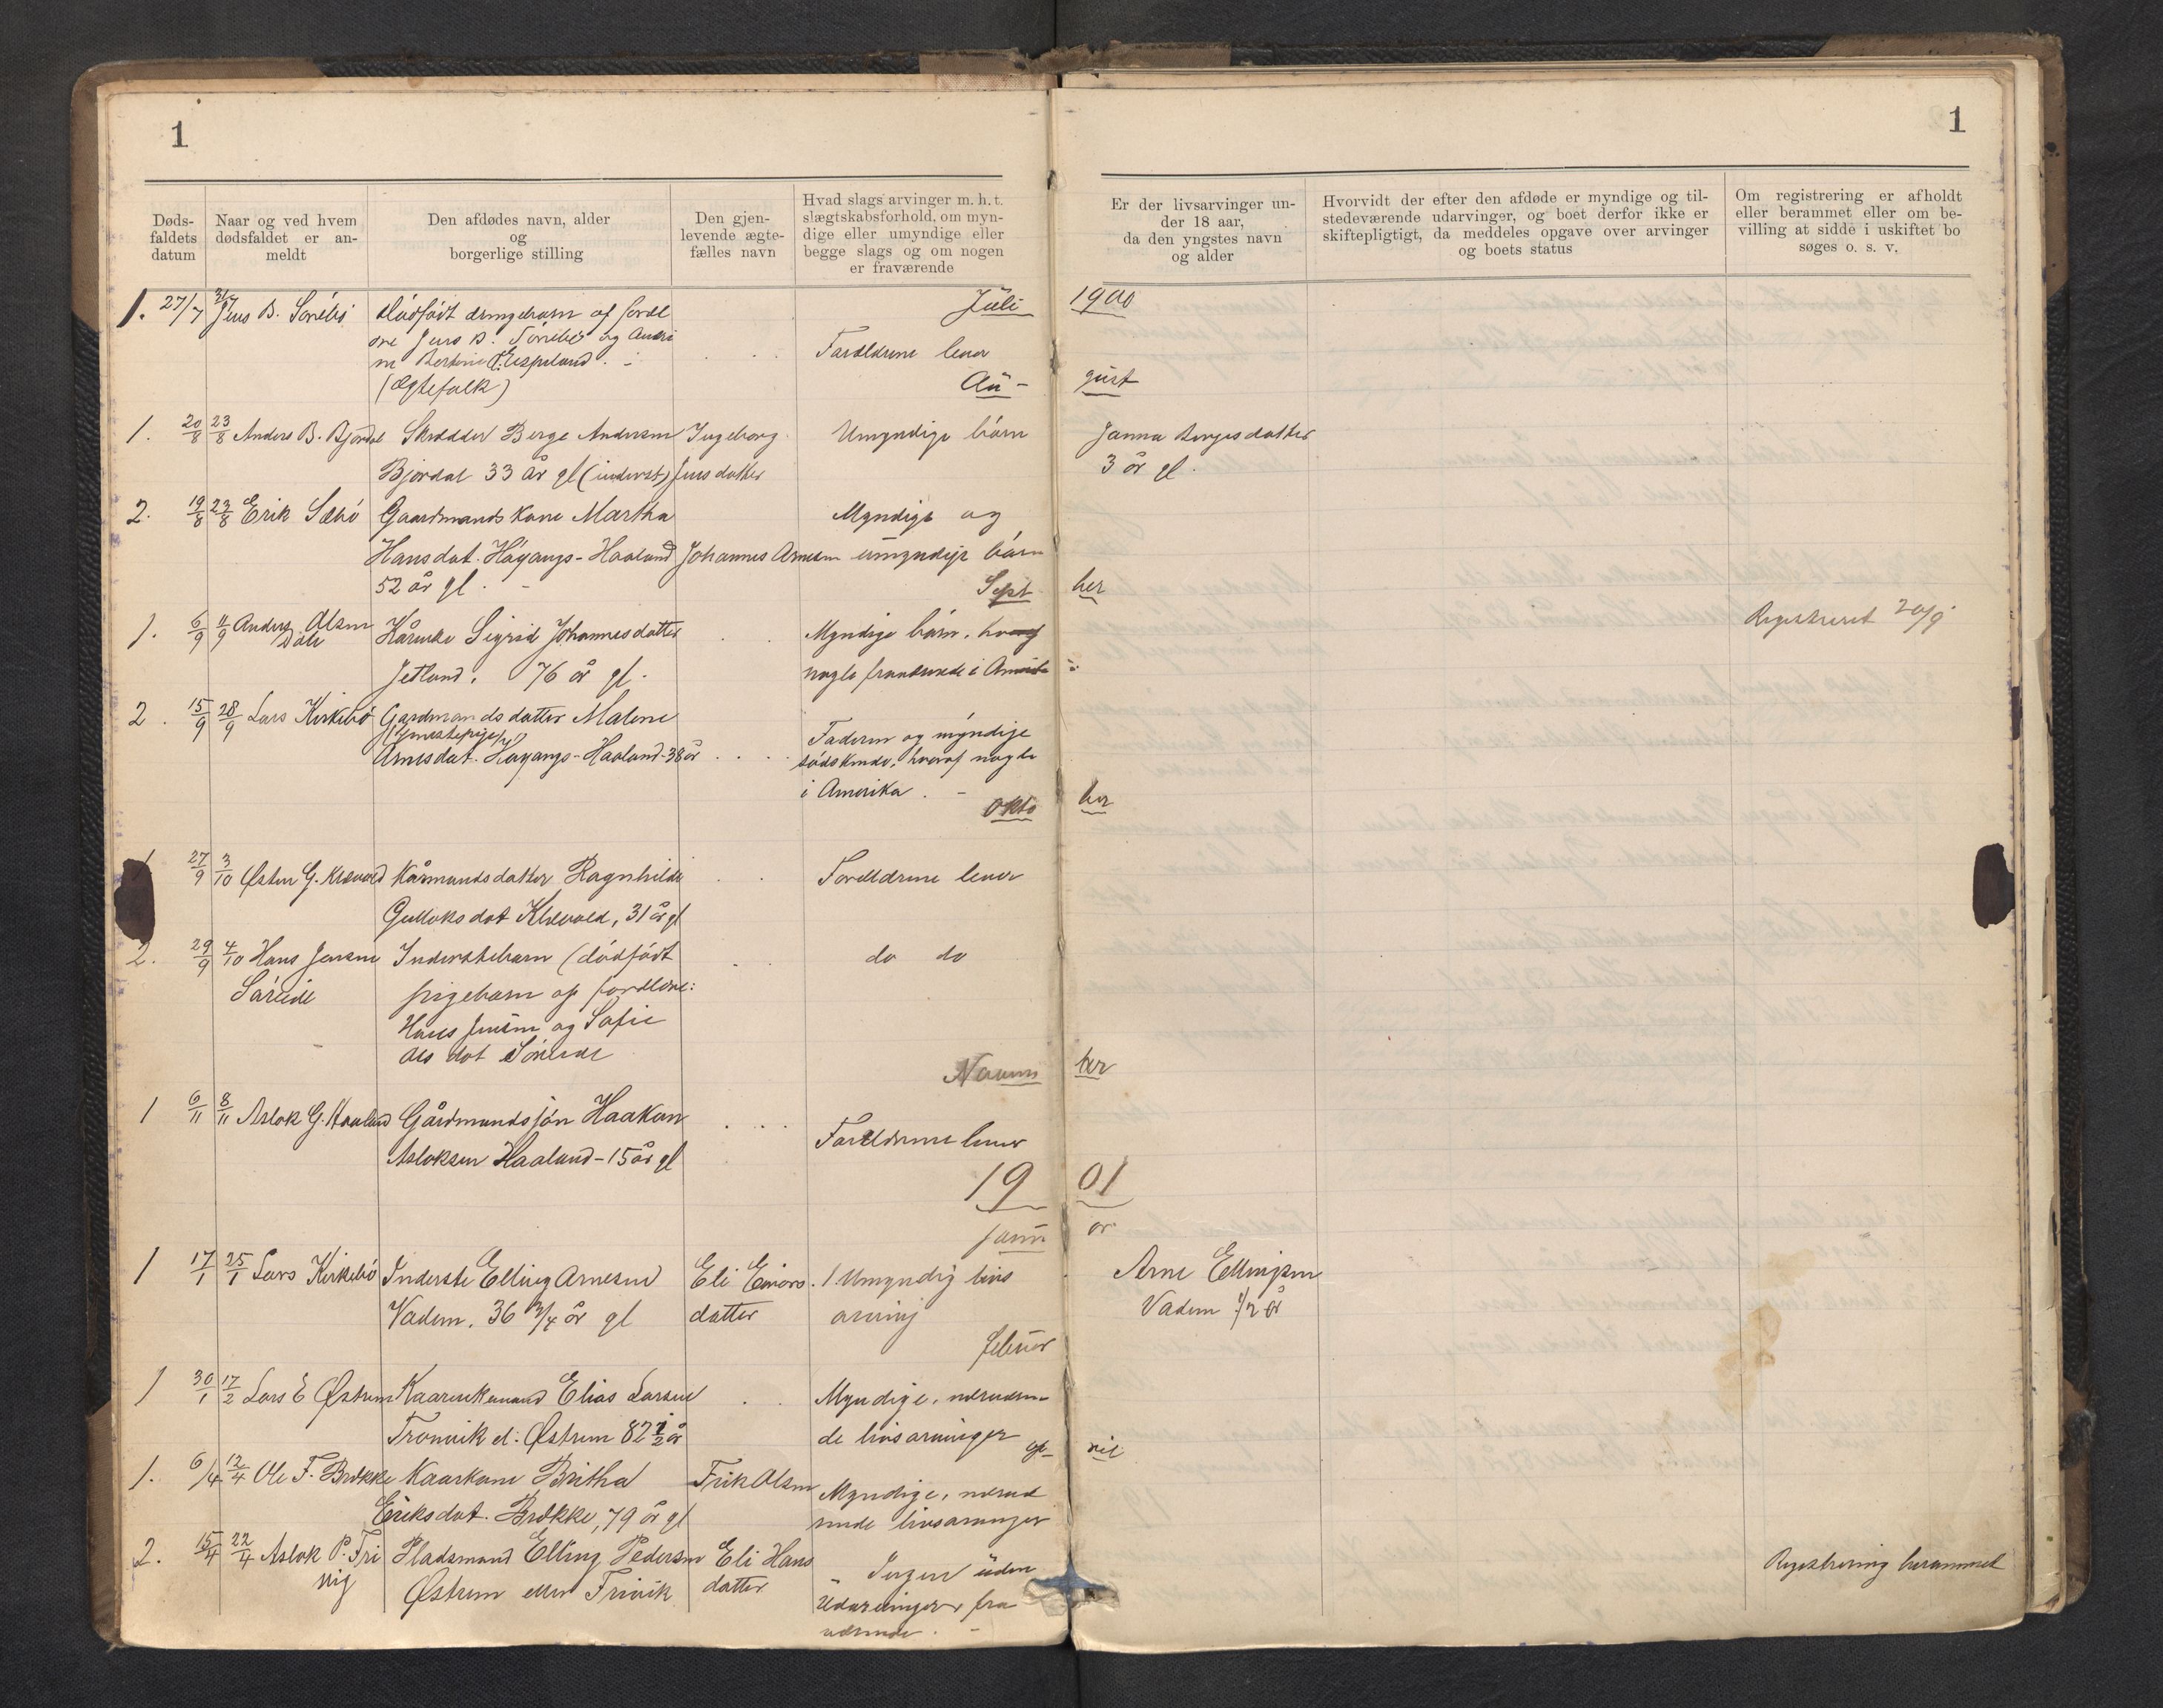 1
1
Døds-
faldets
datum
Naar og ved hvem
dødsfaldet er an-
meldt
Den afdødes navn, alder
og
borgerlige stilling
Den gjen-
levende ægte-
fælles navn
Hvad slags arvinger m. h. t.
slægtskabsforhold, om myn-
dige eller umyndige eller
begge slags og om nogen
er fraværende
Er der livsarvinger un-
der 18 aar,
da den yngstes navn
og alder
Hvorvidt der efter den afdøde er myndige og til-
stedeværende udarvinger, og boet derfor ikke er
skiftepligtigt, da meddeles opgave over arvinger
og boets status
Om registrering er afholdt
eller berammet eller om be-
villing at sidde i uskiftet bo
søges o. s. v.
Juli 1900
1. 27/7 Jens B. Sørebø dødfødt drengebarn af foreld
re Jens B. Sørebø og
Espeland
(Ægtefolk)
Forældrene lever
Au- gust
1. 20/8 23/8 Anders B. Bjordal Skrædder Berge Andersen Ingeborg Umyndige børn Janna Bergesdatter
Bjordal 33 år gl (inderst) Jensdatter 3 år gl.
2. 19/8 23/8 Erik Sæbø Gaardmandskone Martha Myndige og
Hansdat. Høyangs-Haaland Johannes Arnesen umyndige børn
52 år gl.
Sept ber
1. 6/9 11/9 Anders Olsen Dale Kårenke Sigrid Johannesdatter Myndige børn, hvoraf Registreret 20/9
Jetland. 76 år gl. nogle fraværende i Amerika
2. 15/9 28/9 Lars Kirkebø Gardmandsdatter Malene Faderen og myndige
(Tjenestepige)
Arnesdat. Høyangs-Haaland 38 år sødskende, hvoraf nogle
i Amerika.
Okto ber
1 27/9 3/10 Østen G. Klævold Kårmandsdatter Ragnhilde Forældrene lever
Gulleiksdat Klævold, 31 år gl
2. 29/9 4/10 Hans Jensen Inderstebarn (dødfødt do do
Søreide pigebarn af forældre:
Hans Jensen og Sofie
Olsdat Søreide
Novem ber
1 6/11 8/11 Aslak G. Haaland Gårdmandssøn Haakon Forældrene lever
Aslaksen Haaland - 15 år gl
19 01
Janu ar
1 17/1 25/1 Lars Kirkebø Inderste Elling Arnesen Eli Einars- 1 Umyndig livs Arne Ellingsen
Vadem. 36 3/4 år gl datter arving Vadem 1/2 år
Februar
1 30/1 17/2 Lars E Østrem Kaarenkemand Elias Larsen Myndige, nærværen-
Tronvik el: Østrem 82 1/2 år de livsarvinger
Ap- ril
1. 6/4 12/4 Ole F. Brekke Kaarkone Britha Erik Olsen Myndige, nærvæ
Eriksdat. Brekke, 79 år gl rende livsarvinger
2. 15/4 22/4 Aslak P. Tri Pladsmand Elling Pedersen Eli Hans Ingen uden Registrering berammet
vig Østrem eller Trivik datter Udarvinger fra
værende.